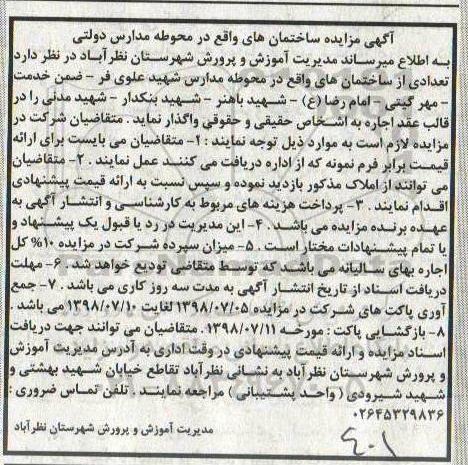 آگهی مزایده ساختمان های واقع در محوطه مدارس دولتی
به اطلاع میرساند مدیریت آموزش و پرورش شهرستان نظرآباد در نظر دارد
تعدادی از ساختمان های واقع در محوطه مدارس شهید علوی فر - ضمن خدمت
- مهر گیتی - امام رضا (ع) - شهید باهنر - شهید بنکدار - شهید مدنی را در
قالب عقد اجاره به اشخاص حقیقی و حقوقی واگذار نماید . متقاضیان شرکت در
مزایده لازم است به موارد ذیل توجه نمایند : ۱- متقاضیان می بایست برای ارائه
قیمت برابر فرم نمونه که از اداره دریافت می کنند عمل نمایند . ۲- متقاضیان
می توانند از املاک مذکور بازدید نموده و سپس نسبت به ارائه قیمت پیشنهادی
اقدام نمایند . ۳- پرداخت هزینه های مربوط به کارشناسی و انتشار آگهی به
عهده برنده مزایده می باشد . ۴- این مدیریت در رد یا قبول یک پیشنهاد و
یا تمام پیشنهادات مختار است . ۵- میزان سپرده شرکت در مزایده ۱۰% کل
اجاره بهای سالیانه می باشد که توسط متقاضی تودیع خواهد شد . ۶- مهلت
دریافت اسناد از تاریخ انتشار آگهی به مدت سه روز کاری می باشد . ۷- جمع
آوری پاکت های شرکت در مزایده ۱۳۹۸/۰۷/۰۵ لغایت ۱۳۹۸/۰۷/۱۰ می باشد .
۸- بازگشایی پاکت : مورخه ۱۳۹۸/۰۷/۱۱ . متقاضیان می توانند جهت دریافت
اسناد مزایده و ارائه قیمت پیشنهادی در وقت اداری به آدرس مدیریت آموزش
و پرورش شهرستان نظرآباد به نشانی نظرآباد تقاطع خیابان شهید بهشتی و
شهید شیرودی ( واحد پشتیبانی ) مراجعه نمایند . تلفن تماس ضروری :
۰۲۶۴۵۳۲۹۸۳۶
مدیریت آموزش و پرورش شهرستان نظرآباد
۴۰۱